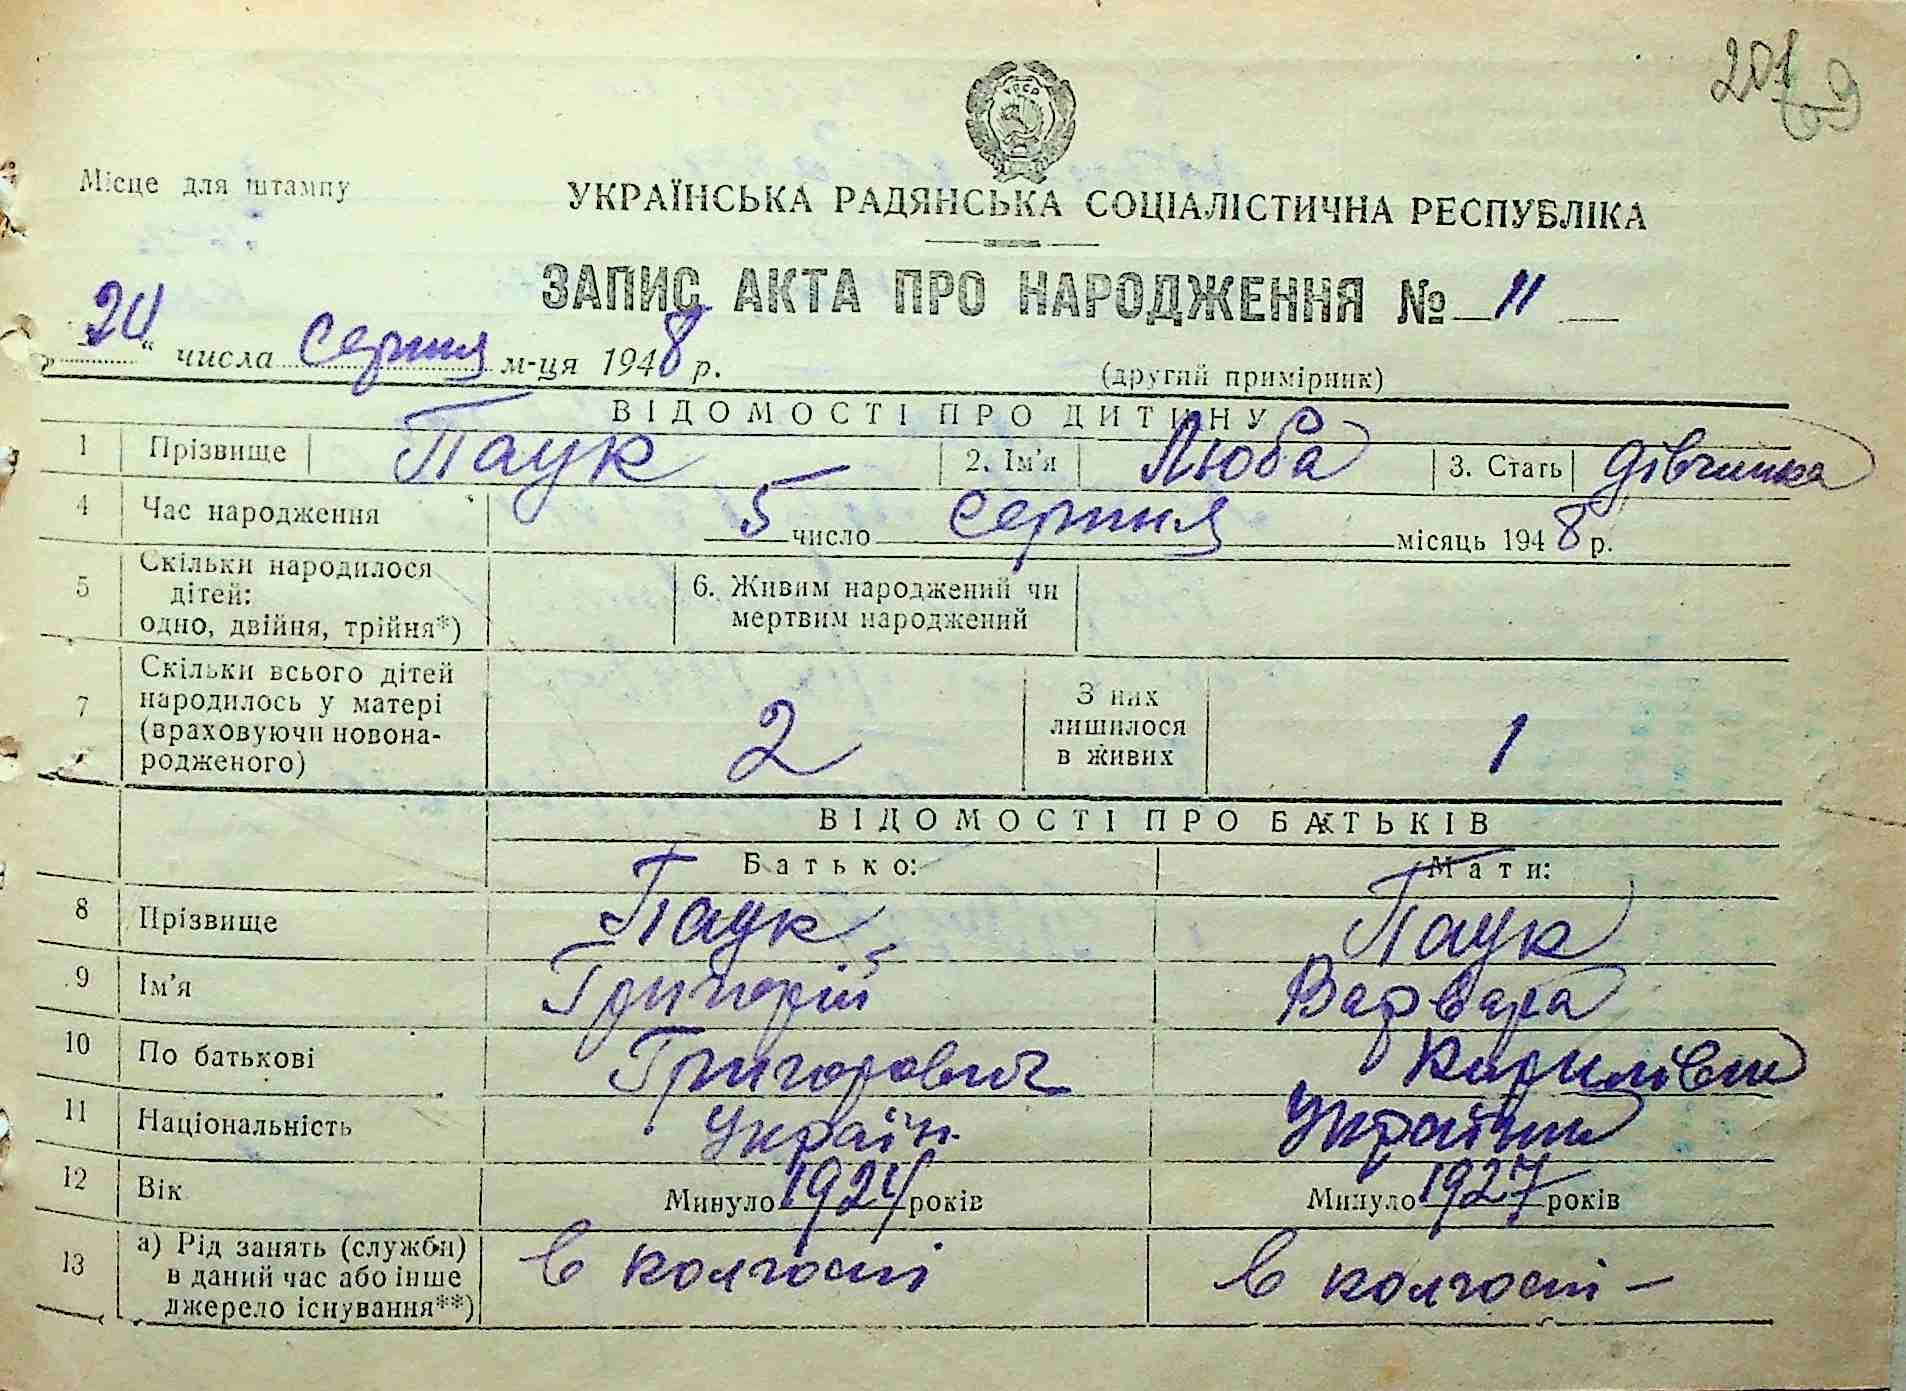 201
69
УРСР
Місце для штампу
УКРАЇНСЬКА РАДЯНСЬКА СОЦІАЛІСТИЧНА РЕСПУБЛІКА
ЗАПИС АКТА ПРО НАРОДЖЕННЯ № 11
„24“ числа серпня м-ця 1948 р.
(другий примірник)
ВІДОМОСТІ ПРО ДИТИНУ
1 Прізвище Паук 2. Ім'я Люба 3. Стать дівчинка
4 Час народження 5 число серпня місяць 1948 р.
5 Скільки народилося дітей: одно, двійня, трійня*) 6. Живим народжений чи мертвим народжений
7 Скільки всього дітей народилось у матері (враховуючи новонародженого) 2 З них лишилося в живих 1
ВІДОМОСТІ ПРО БАТЬКІВ
Батько: Мати:
8 Прізвище Паук Паук
9 Ім'я Григорій Варвара
10 По батькові Григорович Кирилівна
11 Національність Україн. Українка
12 Вік Минуло 1924 років Минуло 1927 років
13 а) Рід занять (служби) в даний час або інше джерело існування**) в колгоспі в колгоспі –